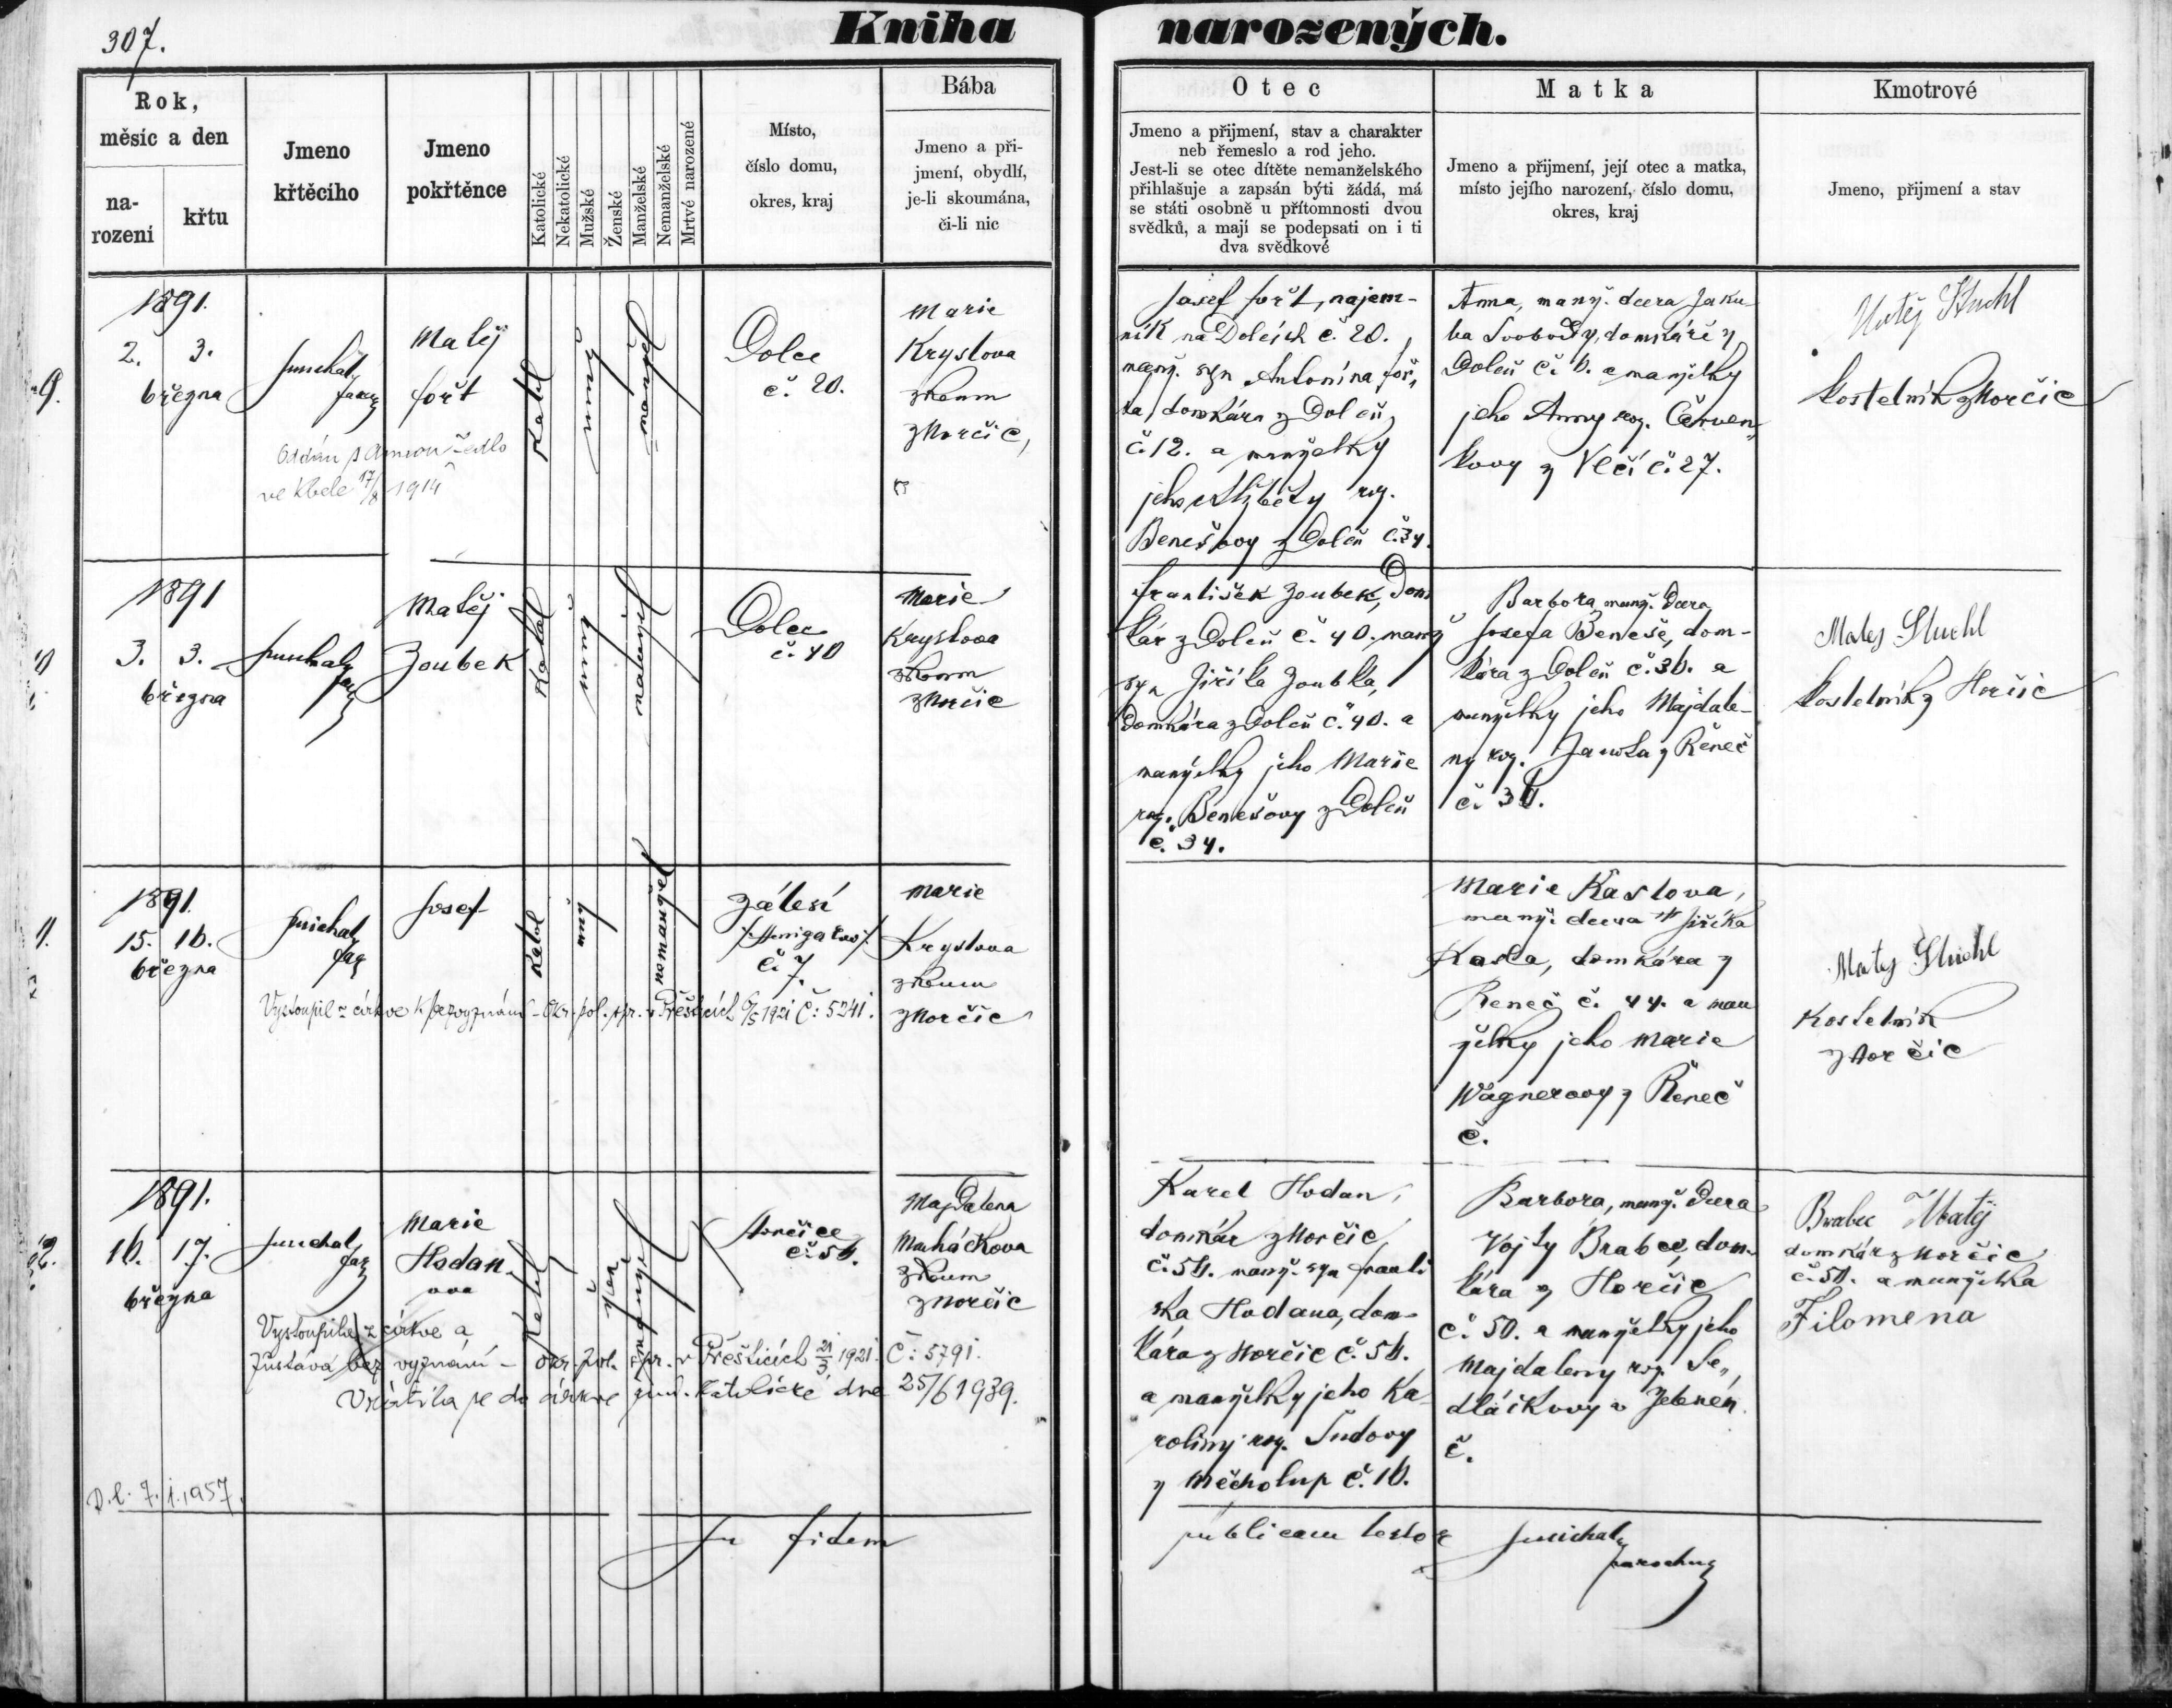 307.
Kniha narozených.
Rok,
měsíc a den
na-
rození
křtu
Jmeno
křtěcího
Jmeno
pokřtěnce
Katolické
Nekatolické
Mužské
Ženské
Manželské
Nemanželské
Mrtvé narozené
Místo,
číslo domu,
okres, kraj
Bába
Jmeno a při-
jmení, obydlí,
je-li skoumána,
či-li nic
Otec
Jmeno a přijmení, stav a charakter
neb řemeslo a rod jeho.
Jest-li se otec dítěte nemanželského
přihlašuje a zapsán býti žádá, má
se státi osobně u přítomnosti dvou
svědků, a mají se podepsati on i ti
dva svědkové
Matka
Jmeno a přijmení, její otec a matka,
místo jejího narození, číslo domu,
okres, kraj
Kmotrové
Jmeno, přijmení a stav
9.
1891.
2. 3.
března
Matěj
Fořt
Katol
manžel
Dolce
č. 20.
Marie
Kryslova
zkoum
z Horčic,
Oddán s Annou
ve Kbele 17/8 1914
Josef Fořt, najem-
ník na Dolcích č. 20.,
manž. syn Antonína Foř-
ta, domkáře z Dolců
č. 12. a manželky
jeho Alžběty roz.
Benešovy z Dolců č. 34.
Anna, manž. dcera Jaku-
ba Svobody, domkáře z
Dolců č. 6. a manželky
jeho Anny roz. Červen-
kovy z Vlčí č. 27.
Matěj Stuchl
kostelník z Horčic
10
1891
3. 3.
března
Matěj
Zoubek
Katol
muž
manžel
Dolce
č. 40
Marie
Kryslova
zkoum
z Horčic
František Zoubek, Dom
kář z Dolců č. 40. manž
syn Jiříka Zoubka,
Domkáře z Dolců č. 40. a
manželky jeho Marie
roz. Benešovy z Dolců
č. 34.
Barbora, manž. Dcera
Josefa Beneše, dom-
káře z Dolců č. 36. a
manželky jeho Majdale-
ny roz. z Řeneč
Matěj Stuchl
kostelník z Horčic
11.
1891.
15. 16.
března
Josef
Katol
muž
nemanžel
Zálesí
č. 7.
Marie
Kryslova
zkoum
z Horčic
Vystoupil z církve k bezvyznání - okr. pol. spr. v Přešticích 1921 č: 5241.
Marie Kaslova,
manž. dcera Jiříka
Kasla, domkáře z
Řeneč č. 44. a man
želky jeho Marie
Wagnerovy z Řeneč
č.
Matěj Stuchl
Kostelník
z Horčic
12.
1891.
16. 17.
března
Marie
Hodan-
ova
Katol
žen
manžel
Horčice
č. 56.
Magdalena
Macháčkova
zkoum
z Horčic
Vystoupila z církve a
zůstává bez vyznání - okr. pol. spr. v Přešticích 21/3 1921. č: 5791.
Vrátila se do církve řím. katolické dne 25/6 1939.
D.l. 7.1.1957.
Karel Hodan,
domkář z Horčic
č. 56. manž. syn Franti
ška Hodana, dom-
káře z Horčic č. 56.
a manželky jeho Ka-
roliny roz. Šudovy
z Měcholup č. 16.
Barbora, manž. Dcera
Vojty Brabce, dom-
káře z Horčic
č. 50. a manželky jeho
Majdaleny roz. Se-
dláčkovy
č.
Brabec Matěj
domkář z Horčic
č. 50. a manželka
Filomena
In fidem publicam testor
parochus